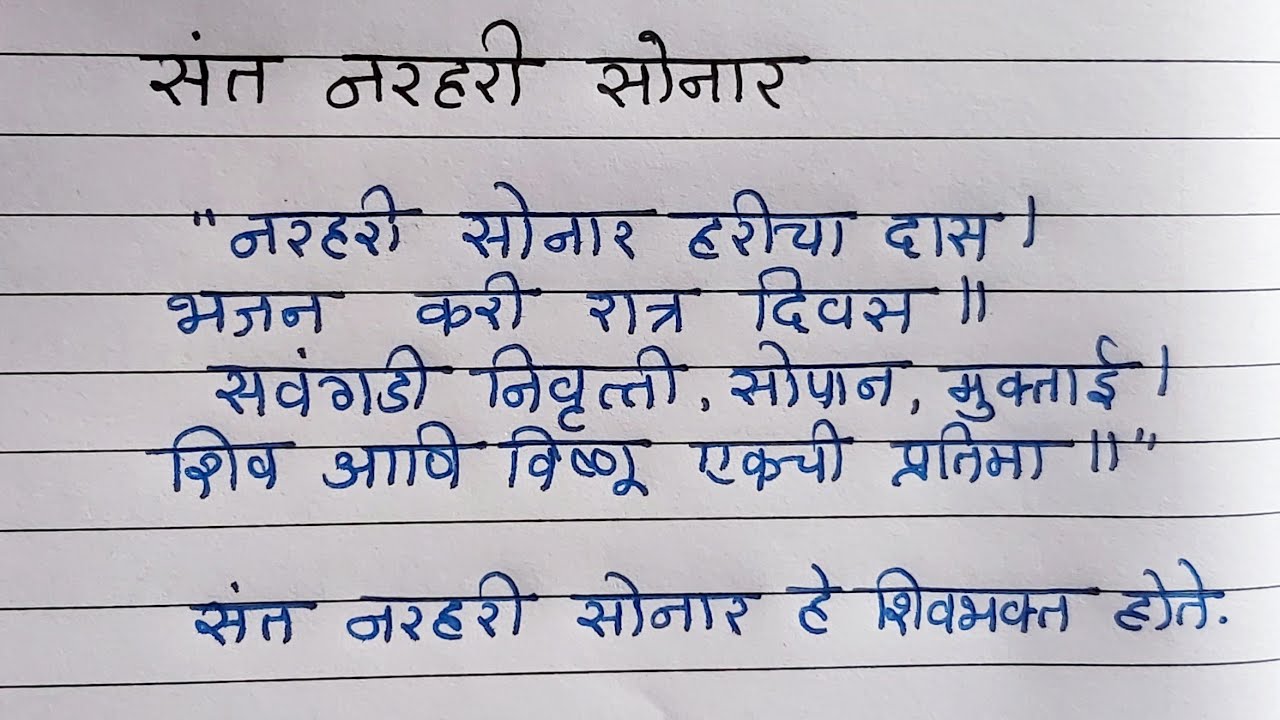 संत नरहरी सोनार
"नरहरी सोनार हरीचा दास।
भजन करी रात्र दिवस॥
सवंगडी निवृत्ती, सोपान, मुक्ताई।
शिव आणि विष्णू एकची प्रतिमा॥"
संत नरहरी सोनार हे शिवभक्त होते.